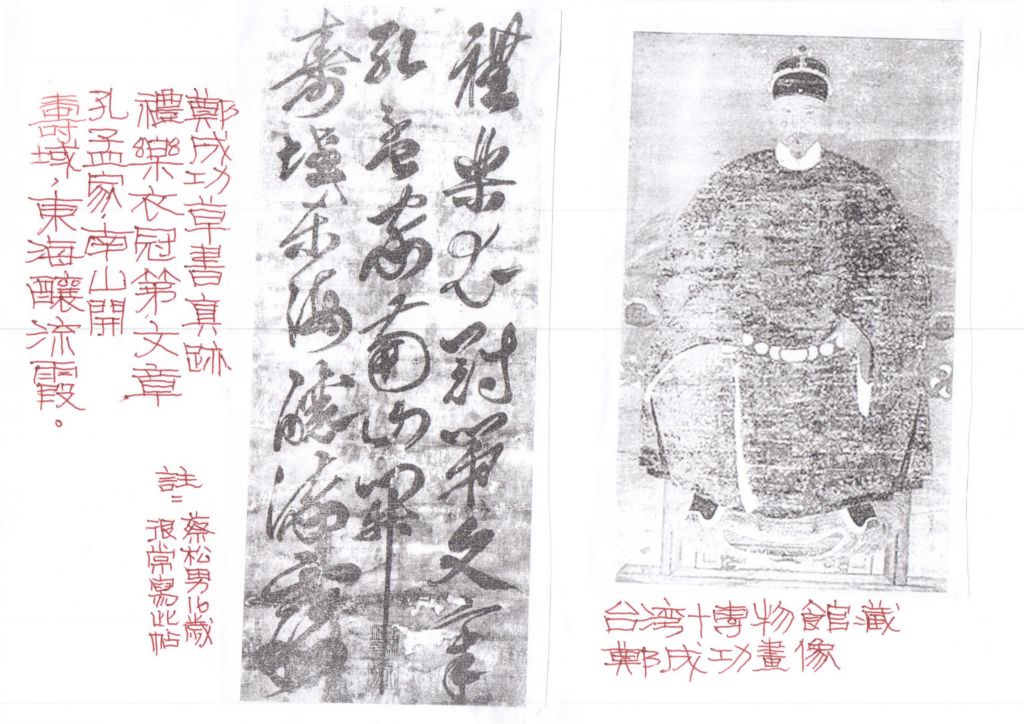 台湾博物館藏
鄭成功畫像
禮樂衣冠第文章
孔孟家南山開
壽域東海釀流霞
鄭成功草書真跡
禮樂衣冠第,文章
孔孟家,南山開
壽域,東海釀流霞。
註=
蔡松男16歲
很常寫此帖